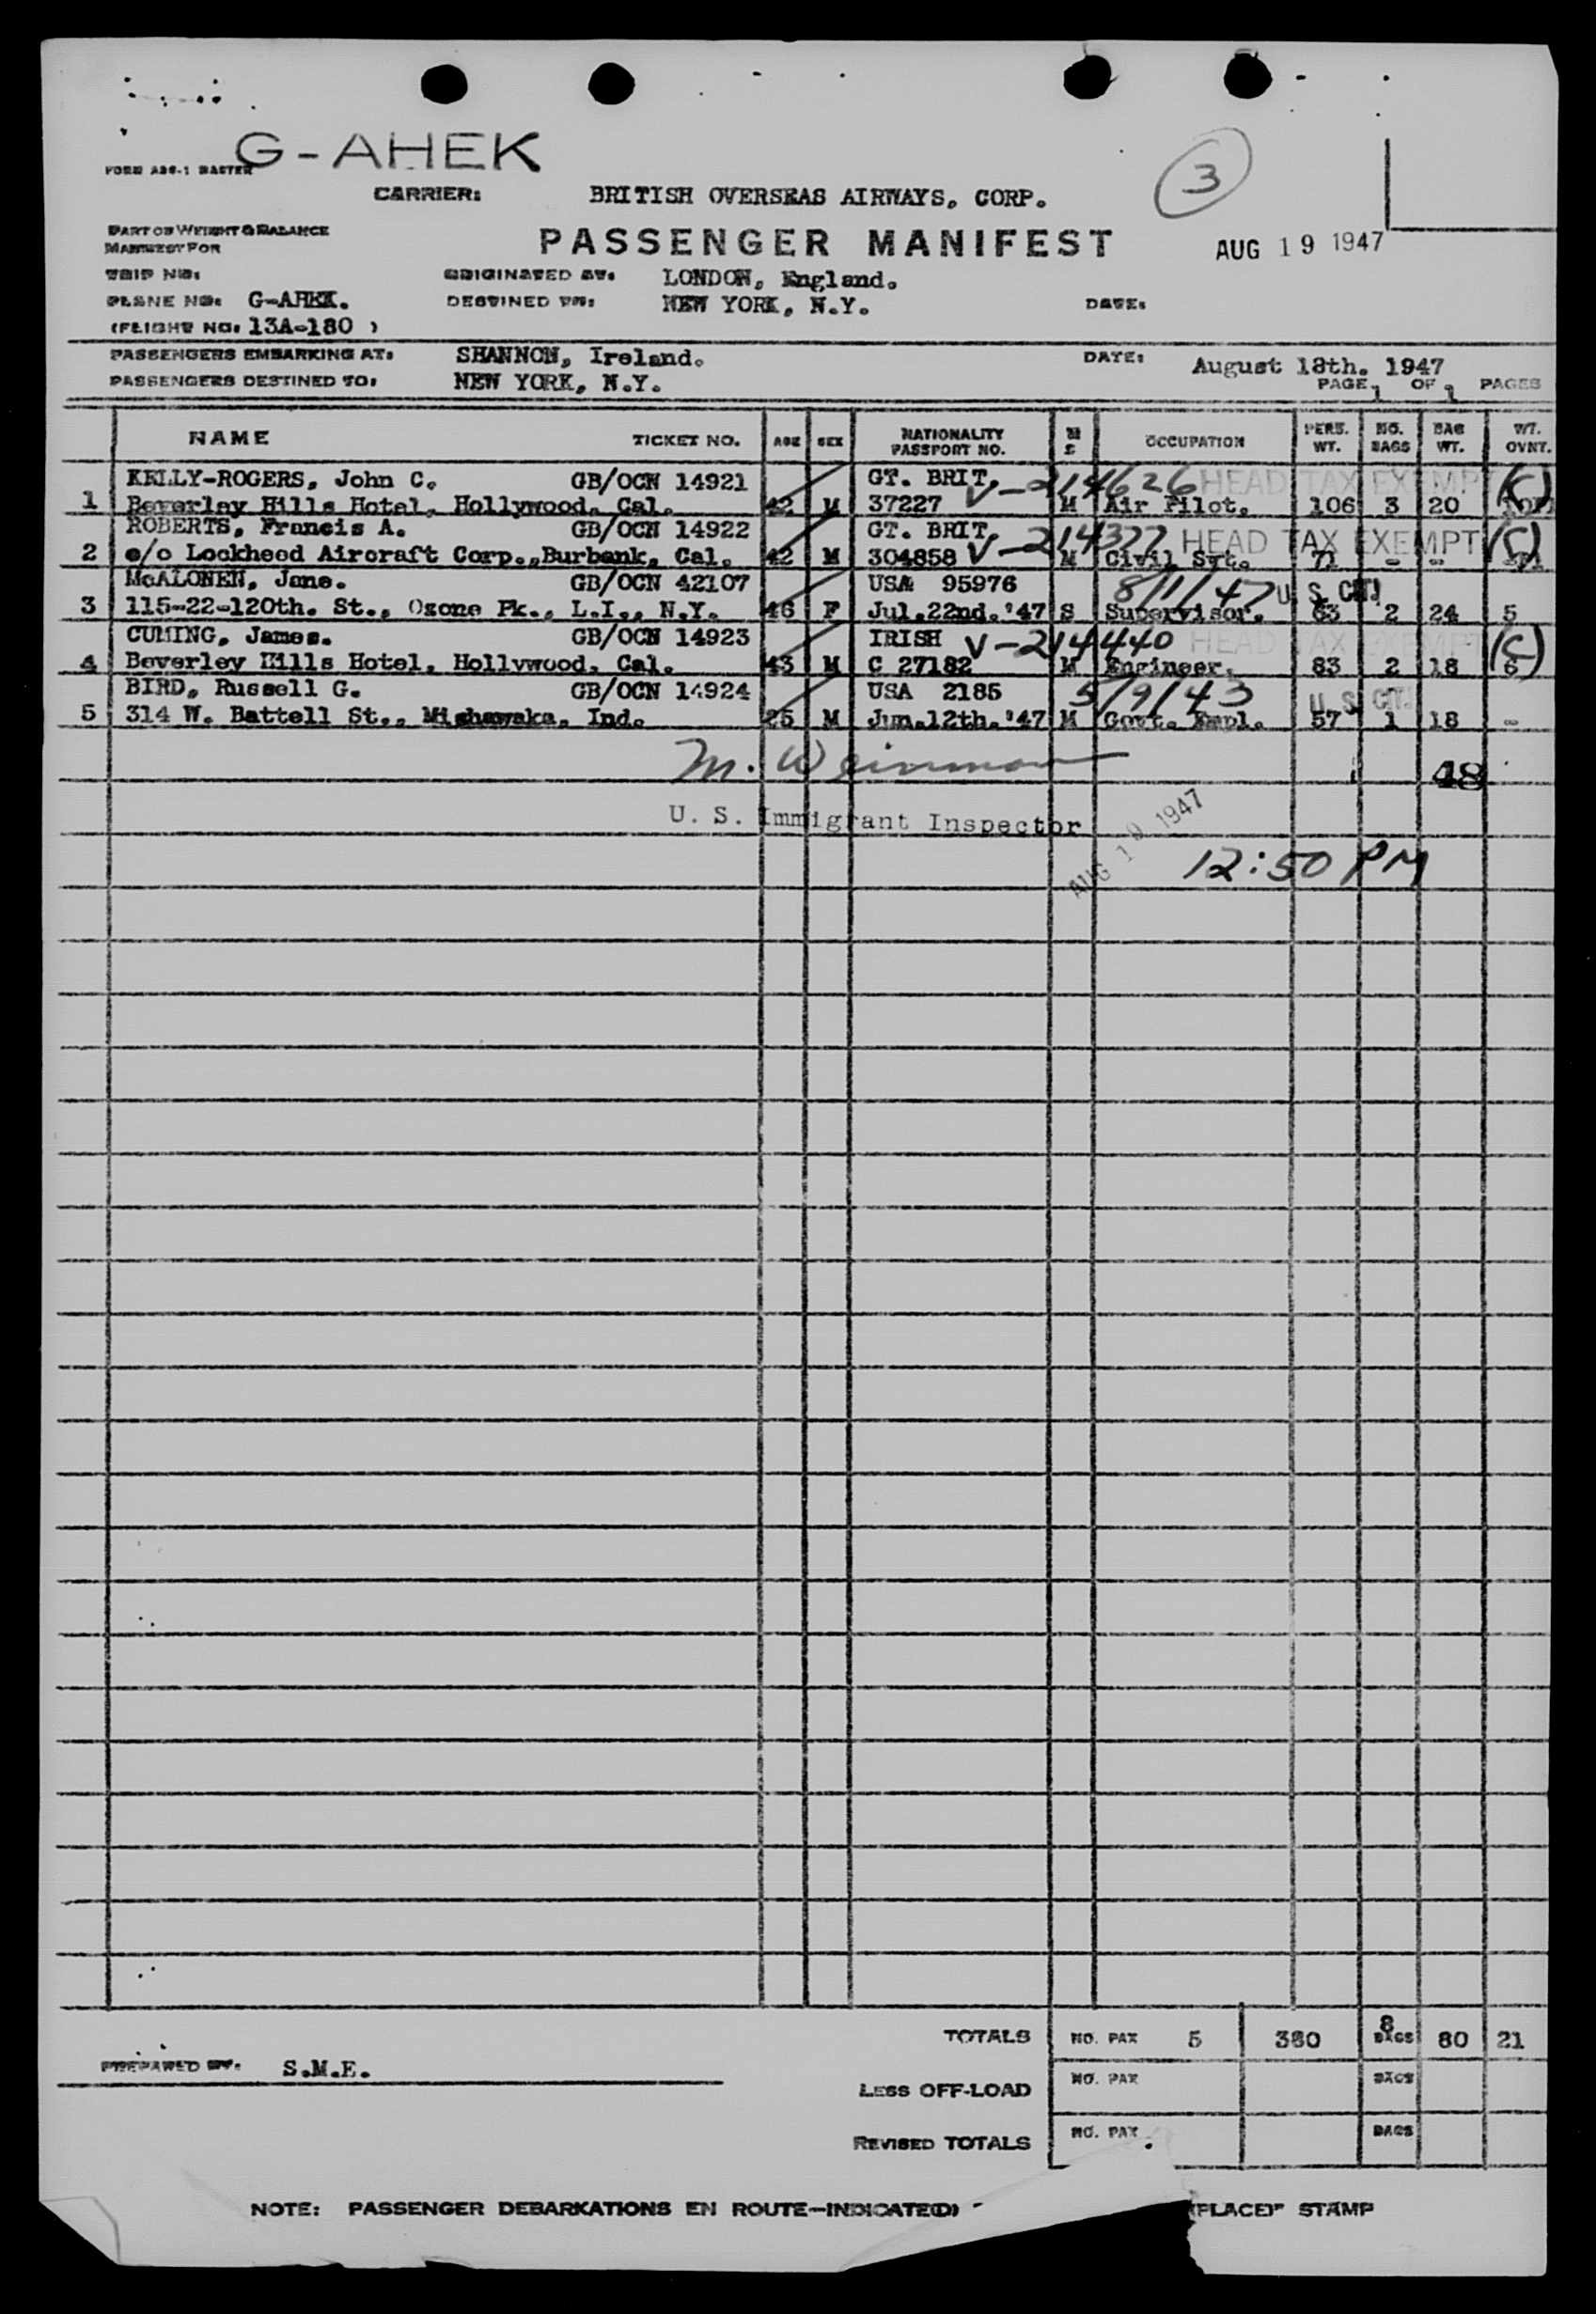 G-AHEK
FORM ABG-1 MASTER
3
CARRIER: BRITISH OVERSEAS AIRWAYS, CORP.
PART OF WEIGHT & BALANCE
MANIFEST FOR
PASSENGER MANIFEST
AUG 19 1947
TRIP NO:
ORIGINATED AT: LONDON, England.
PLANE NO: G-AHEK.
DESTINED TO: NEW YORK, N.Y.
DATE:
(FLIGHT NO: 13A-180 )
PASSENGERS EMBARKING AT: SHANNON, Ireland.
DATE: August 18th. 1947
PASSENGERS DESTINED TO: NEW YORK, N.Y.
PAGE 1 OF 1 PAGES
NAME TICKET NO. AGE SEX NATIONALITY PASSPORT NO. M S OCCUPATION PERS. WT. NO. BAGS BAG WT. WT. OVNT.
KELLY-ROGERS, John C. GB/OCN 14921 GT. BRIT. V-214626 HEAD TAX EXEMPT (C)
1 Beverley Hills Hotel, Hollywood, Cal. 42 M 37227 M Air Pilot. 106 3 20
ROBERTS, Francis A. GB/OCN 14922 GT. BRIT. V-214377 HEAD TAX EXEMPT (C)
2 c/o Lockheed Aircraft Corp.,Burbank, Cal. 42 M 304858 M Civil Svt. 71 - -
McALONEN, Jane. GB/OCN 42107 USA 95976 8/11/47 U. S. CIT.
3 115-22-120th. St., Ozone Pk., L.I., N.Y. 46 F Jul.22nd.'47 S Supervisor. 63 2 24 5
CUMING, James. GB/OCN 14923 IRISH V-214440 HEAD TAX EXEMPT (C)
4 Beverley Hills Hotel, Hollywood, Cal. 43 M C 27182 M Engineer. 83 2 18 6
BIRD, Russell G. GB/OCN 14924 USA 2185 5/9/43 U. S. CIT.
5 314 W. Battell St., Mishawaka, Ind. 25 M Jun.12th.'47 M Govt. Empl. 57 1 18 -
M. Weinman
48
U. S. Immigrant Inspector
AUG 19 1947
12:50 PM
TOTALS NO. PAX 5 380 8 BAGS 80 21
PREPARED BY: S.M.E.
LESS OFF-LOAD NO. PAX BAGS
REVISED TOTALS NO. PAX BAGS
NOTE: PASSENGER DEBARKATIONS EN ROUTE—INDICATE(D) (PLACE)" STAMP